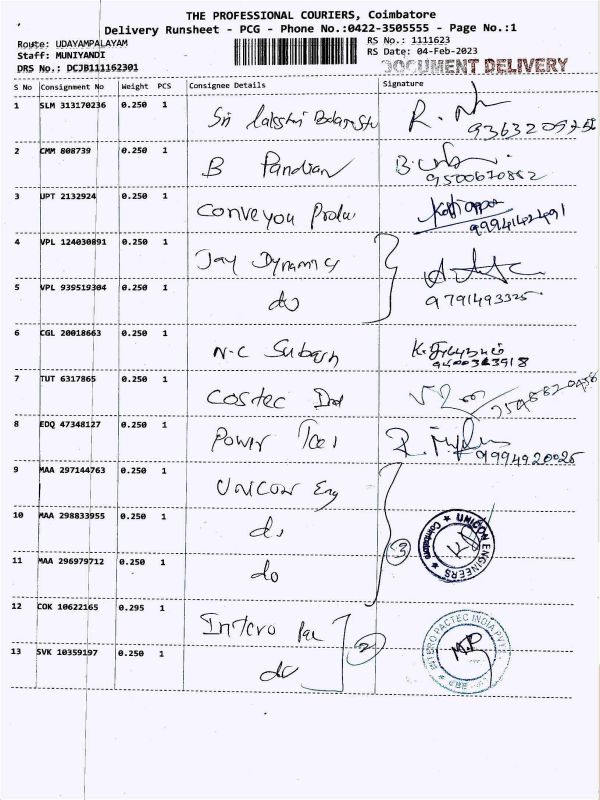 THE PROFESSIONAL COURIERS, Coimbatore
Delivery Runsheet - PCG - Phone No.:0422-3505555 - Page No.:1
Route: UDAYAMPALAYAM RS No.: 1111623
Staff: MUNIYANDI RS Date: 04-Feb-2023
DRS No.: DCJB111162301 DOCUMENT DELIVERY
S No Consignment No Weight PCS Consignee Details Signature
1 SLM 313170236 0.250 1 Sri Lakshmi
2 CMM 808739 0.250 1 B Pandian 9500670882
3 UPT 2132924 0.250 1 Conveyou
4 VPL 124030891 0.250 1 Jay Dynamics
5 VPL 939519304 0.250 1 do 9791493325
6 CGL 20018663 0.250 1 N.C Subash
7 TUT 6317865 0.250 1 Costec
8 EDQ 47348127 0.250 1 Power 9994920025
9 MAA 297144763 0.250 1 UNICON Eng
10 MAA 298833955 0.250 1 do
11 MAA 296979712 0.250 1 do 3
UNICON ENGINEERS ★ Coimbatore ★
12 COK 10622165 0.295 1 Intero Pac
13 SVK 10359197 0.250 1 do 2
INTERO PACTEC INDIA PVT LTD